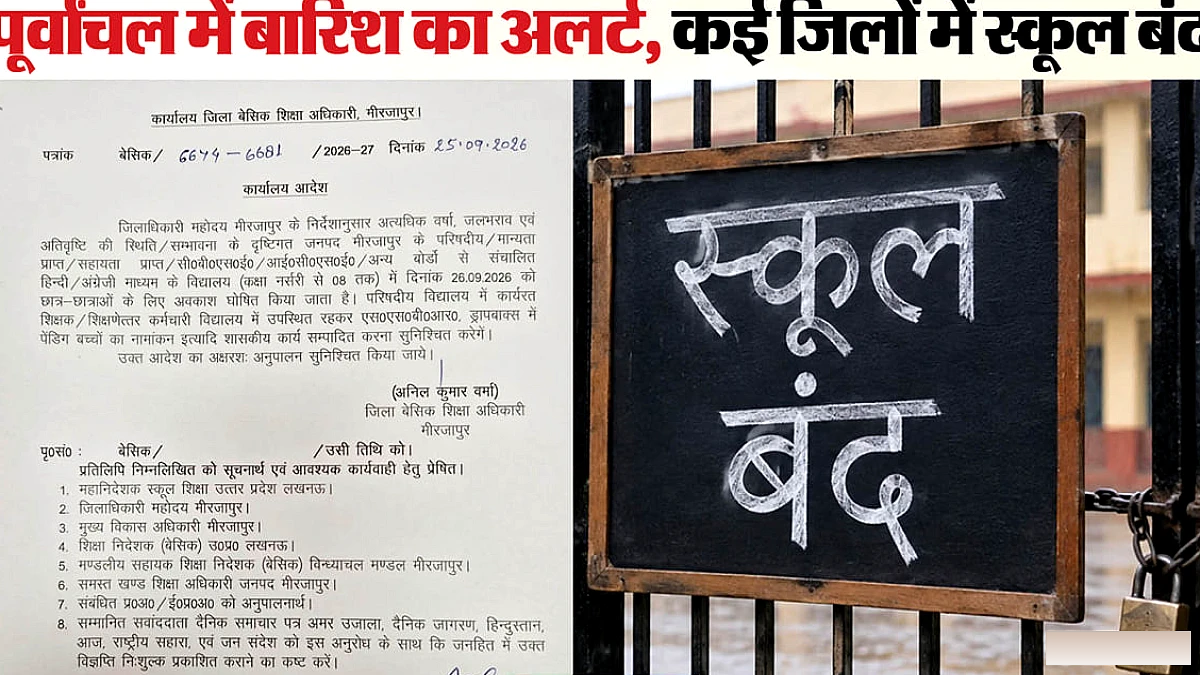 पूर्वांचल में बारिश का अलर्ट, कई जिलों में स्कूल बंद
कार्यालय जिला बेसिक शिक्षा अधिकारी, मीरजापुर।
पत्रांक बेसिक/ 6674-6681 /2026-27 दिनांक 25.09.2026
कार्यालय आदेश
जिलाधिकारी महोदय मीरजापुर के निर्देशानुसार अत्यधिक वर्षा, जलभराव एवं
अतिवृष्टि की स्थिति/सम्भावना के दृष्टिगत जनपद मीरजापुर के परिषदीय/मान्यता
प्राप्त/सहायता प्राप्त/सी०बी०एस०ई०/आई०सी०एस०ई०/अन्य बोर्डो से संचालित
हिन्दी/अंग्रेजी माध्यम के विद्यालय (कक्षा नर्सरी से 08 तक) में दिनांक 26.09.2026 को
छात्र-छात्राओं के लिए अवकाश घोषित किया जाता है। परिषदीय विद्यालय में कार्यरत
शिक्षक/शिक्षणेत्तर कर्मचारी विद्यालय में उपस्थित रहकर एस०एस०बी०आर०, ड्रापबाक्स में
पेंडिग बच्चों का नामांकन इत्यादि शासकीय कार्य सम्पादित करना सुनिश्चित करेगें।
उक्त आदेश का अक्षरशः अनुपालन सुनिश्चित किया जाये।
(अनिल कुमार वर्मा)
जिला बेसिक शिक्षा अधिकारी
मीरजापुर
पृ०सं० : बेसिक/ /उसी तिथि को।
प्रतिलिपि निम्नलिखित को सूचनार्थ एवं आवश्यक कार्यवाही हेतु प्रेषित।
1. महानिदेशक स्कूल शिक्षा उत्तर प्रदेश लखनऊ।
2. जिलाधिकारी महोदय मीरजापुर।
3. मुख्य विकास अधिकारी मीरजापुर।
4. शिक्षा निदेशक (बेसिक) उ०प्र० लखनऊ।
5. मण्डलीय सहायक शिक्षा निदेशक (बेसिक) विन्ध्याचल मण्डल मीरजापुर।
6. समस्त खण्ड शिक्षा अधिकारी जनपद मीरजापुर।
7. संबंधित प्र०अ०/ई०प्र०अ० को अनुपालनार्थ।
8. सम्मानित सवांददाता दैनिक समाचार पत्र अमर उजाला, दैनिक जागरण, हिन्दुस्तान,
आज, राष्ट्रीय सहारा, एवं जन संदेश को इस अनुरोध के साथ कि जनहित में उक्त
विज्ञप्ति निःशुल्क प्रकाशित कराने का कष्ट करें।
स्कूल
बंद